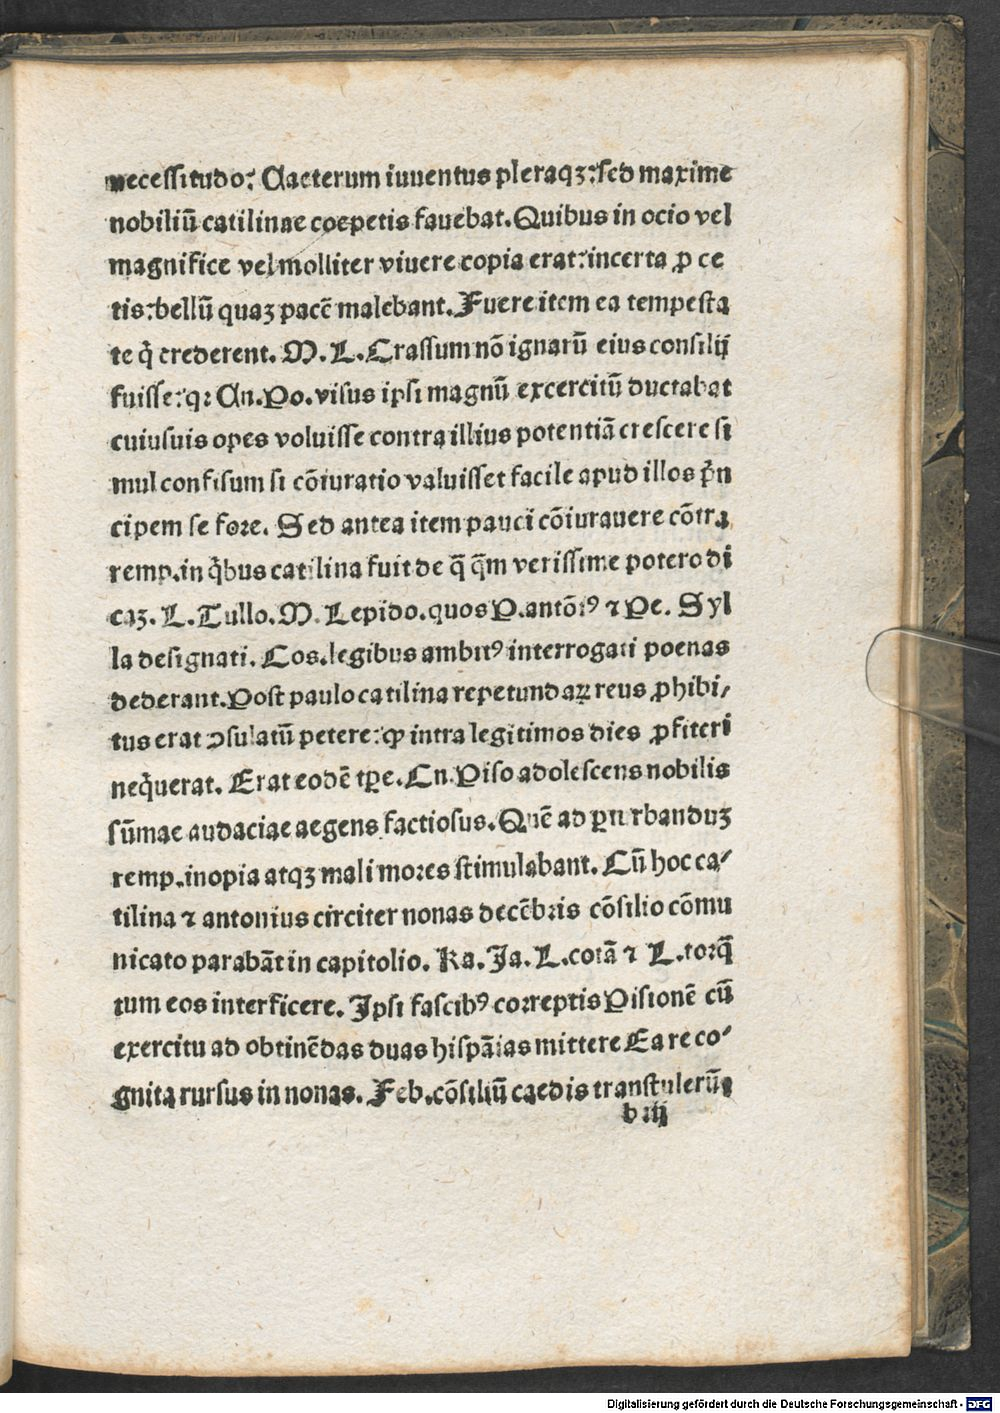 necessitudo: Caeterum iuuentus pleraqꝫ: sed maxime
nobiliū catilinae coepetis fauebat. Quibus in ocio vel
magnifice vel molliter viuere copia erat: incerta ꝓ ce
tis: bellū quaꝫ pacē malebant. Fuere item ea tempesta
te q̇ crederent. M. L. Crassum nō ignarū eius consilij
fuisse: qꝛ Cn. Po. visus ipsi magnū excercitū ductabat
cuiusuis opes voluisse contra illius potentiā crescere si
mul confisum si cōiuratio valuisset facile apud illos p̄in
cipem se fore. Sed antea item pauci cōiurauere cōtra
remp. in q̇bus catilina fuit de q̄ q̄m verissime potero di
caꝫ. L. Tullo. M. Lepido. quos P. antōiꝰ ⁊ Pe. Syl
la designati. Cos. legibus ambitꝰ interrogati poenas
dederant. Post paulo catilina repetundaꝝ reus ꝓhibi/
tus erat ↄsulatū petere: ꝙ intra legitimos dies ꝓfiteri
neq̇uerat. Erat eodē tꝑe. Cn. Piso adolescens nobilis
sūmae audaciae aegens factiosus. Quē ad ꝑturbanduꝫ
remp. inopia atqꝫ mali mores stimulabant. Cū hoc ca/
tilina ⁊ antonius circiter nonas decēbris cōsilio cōmu
nicato parabāt in capitolio. Ka. Ja. L. cotā ⁊ L. torq̄
tum eos interficere. Ipsi fascibꝰ correptis Pisionē cū
exercitu ad obtinēdas duas hispāias mittere Ea re co/
gnita rursus in nonas. Feb. cōsiliū caedis transtulerūt
b iij
Digitalisierung gefördert durch die Deutsche Forschungsgemeinschaft - DFG